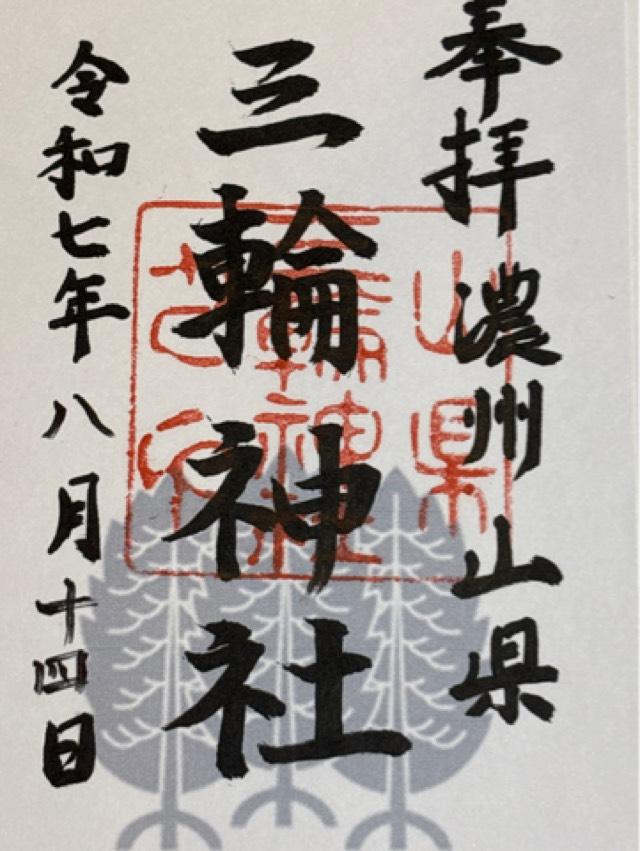 奉拝 濃州山県
三輪神社
令和七年八月十四日
山県
三輪神社